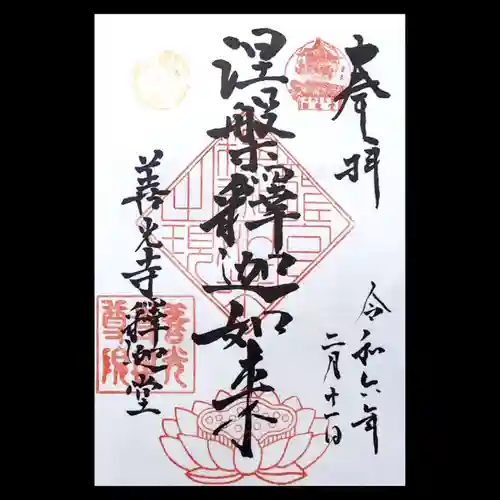 奉拝
令和六年
二月十一日
涅槃釋迦如来
善光寺釋迦堂